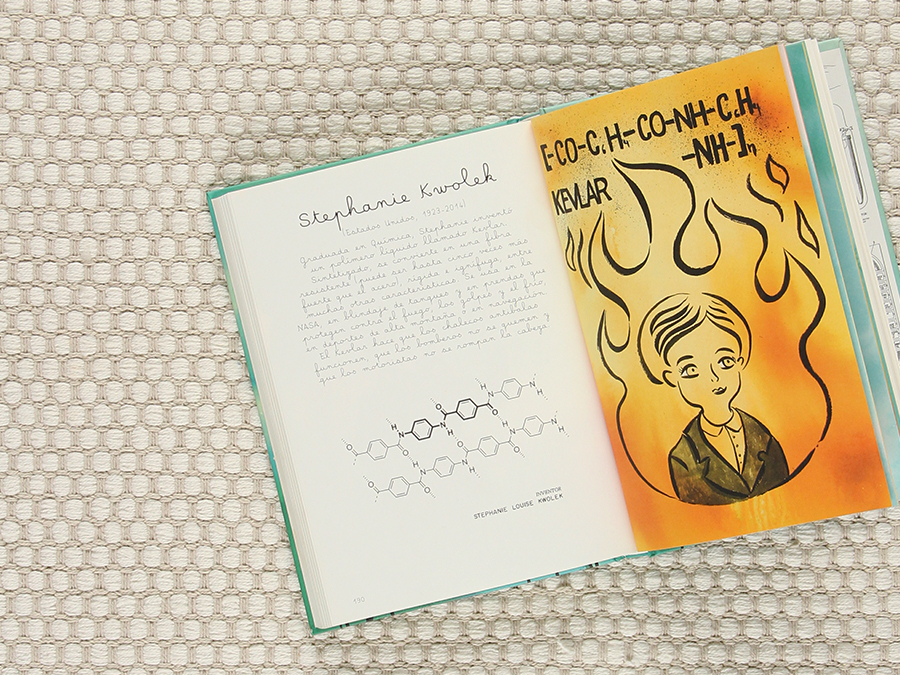 Stephanie Kwolek
(Estados Unidos, 1923-2014)
Graduada en Química, Stephanie inventó
un polímero líquido llamado Kevlar.
Sintetizado, se convierte en una fibra
resistente (puede ser hasta cinco veces más
fuerte que el acero), rígida e ignífuga, entre
muchas otras características. Se usa en la
NASA, en blindaje de tanques y en prendas que
protegen contra el fuego, los golpes y el frío,
en deportes de alta montaña o en navegación.
El Kevlar hace que los chalecos antibalas
funcionen, que los bomberos no se quemen y
que los motoristas no se rompan la cabeza.
INVENTOR
STEPHANIE LOUISE KWOLEK
190
[-CO-C₆H₄-CO-NH-C₆H₄
-NH-]n
KEVLAR